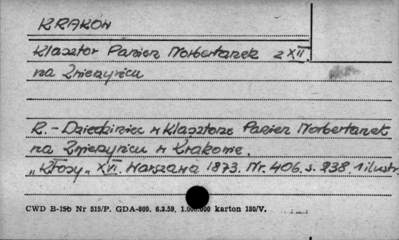 KRAKÓW
Klasztor Panien Norbertanek z XII.
na Zwierzyńcu
R. - Dziedziniec w Klasztorze Panien Norbertanek
na Zwierzyńcu w Krakowie.
"Kłosy" XVI. Warszawa 1873. Nr. 406. s. 238. 1 ilustr.
CWD B-19b Nr 515/P. GDA-869. 6.3.59, 1.000.000 karton 180/V.